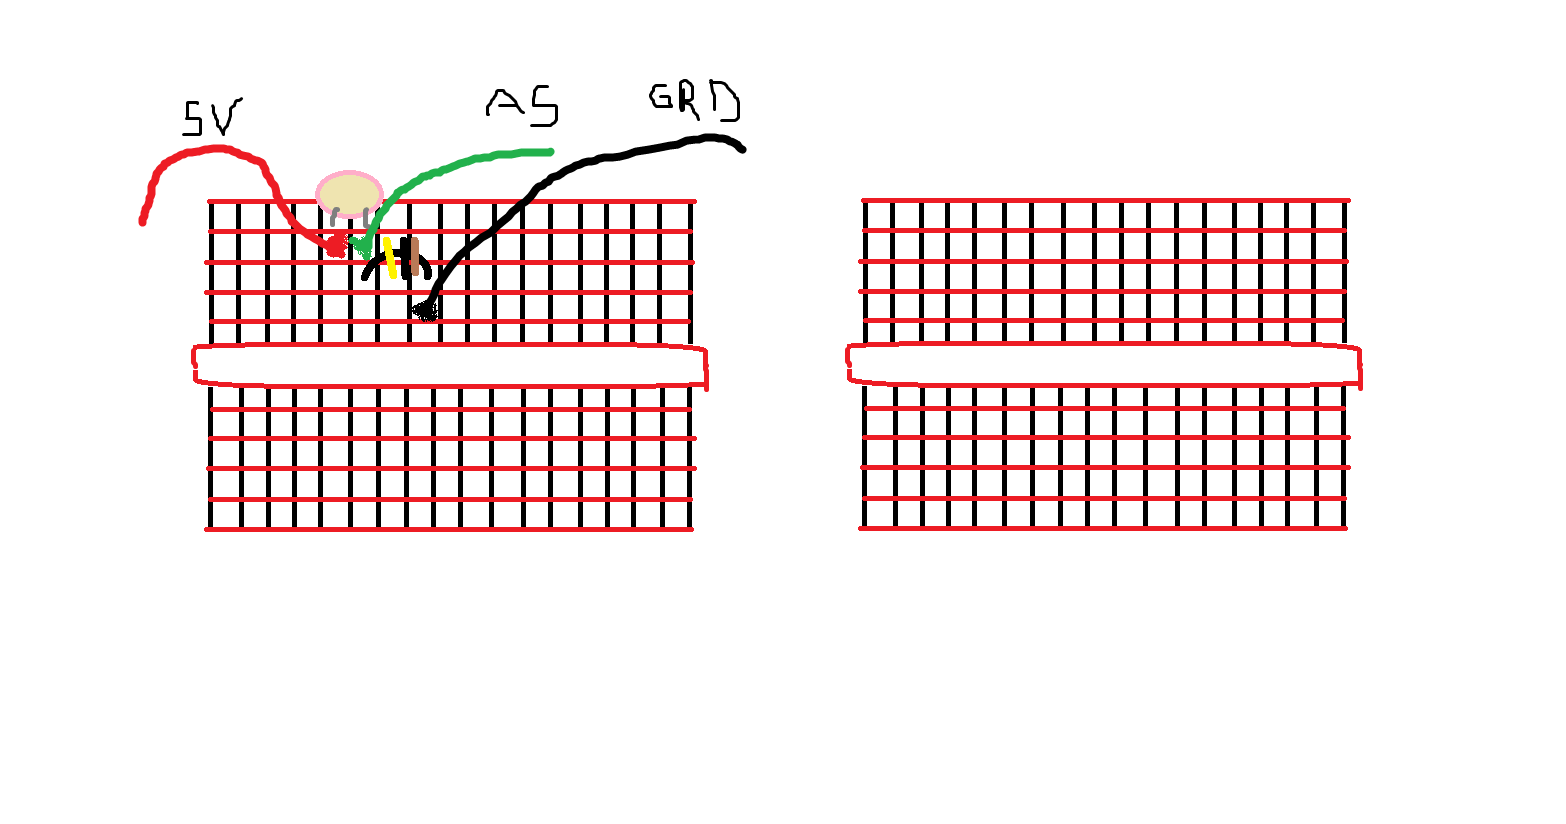 5V
A5
GRD